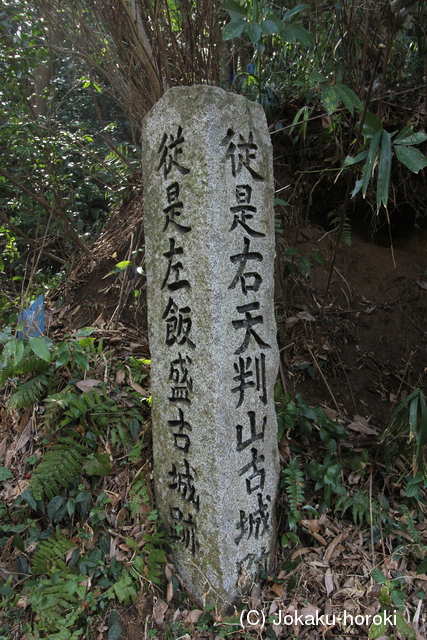 従是右天判山古城跡
従是左飯盛古城跡
(C) Jokaku-horoki